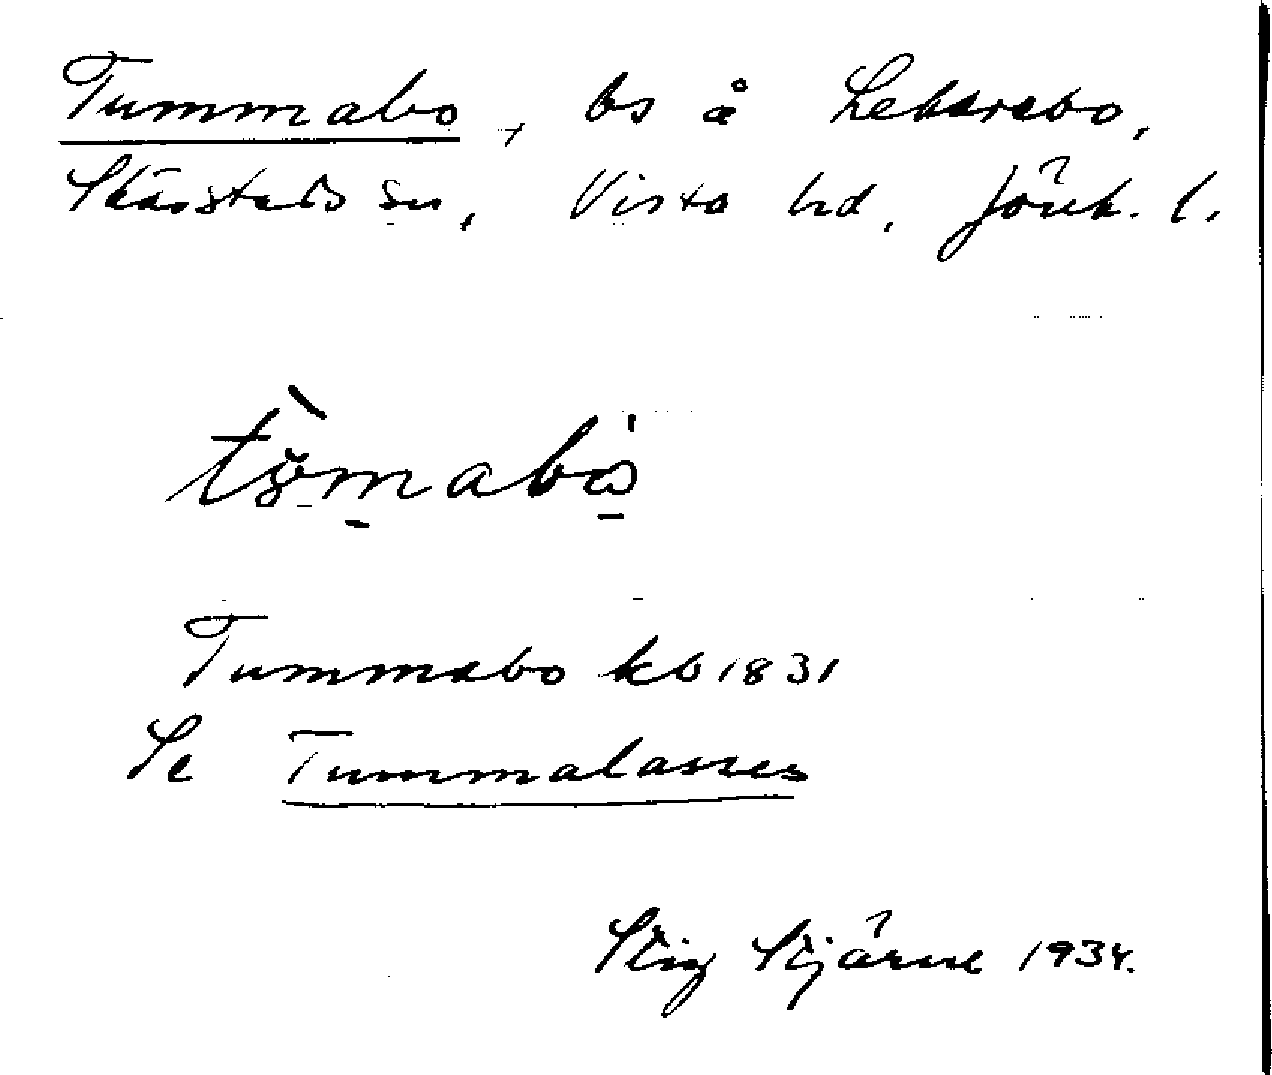 Tummabo, bs å Lekarebo,
Skärstads sn, Vista hd, Jönk. l.
Tummabo kb 1831
Se Tummalasses
Stig Stjärne 1934.